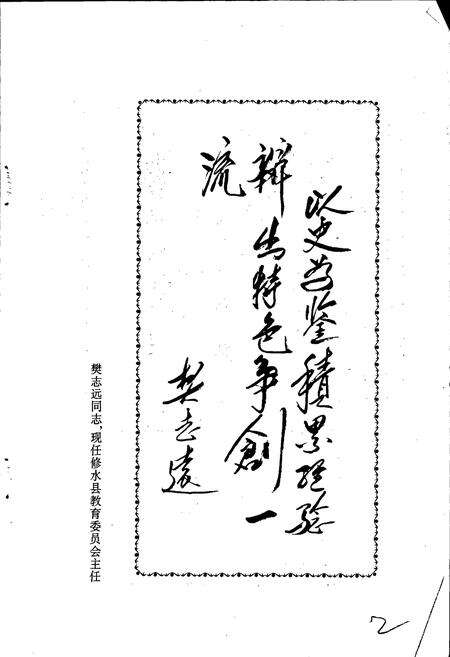 以史为鉴積累经验
辦出特色争創一
流
樊志遠
樊志远同志，现任修水县教育委员会主任
2